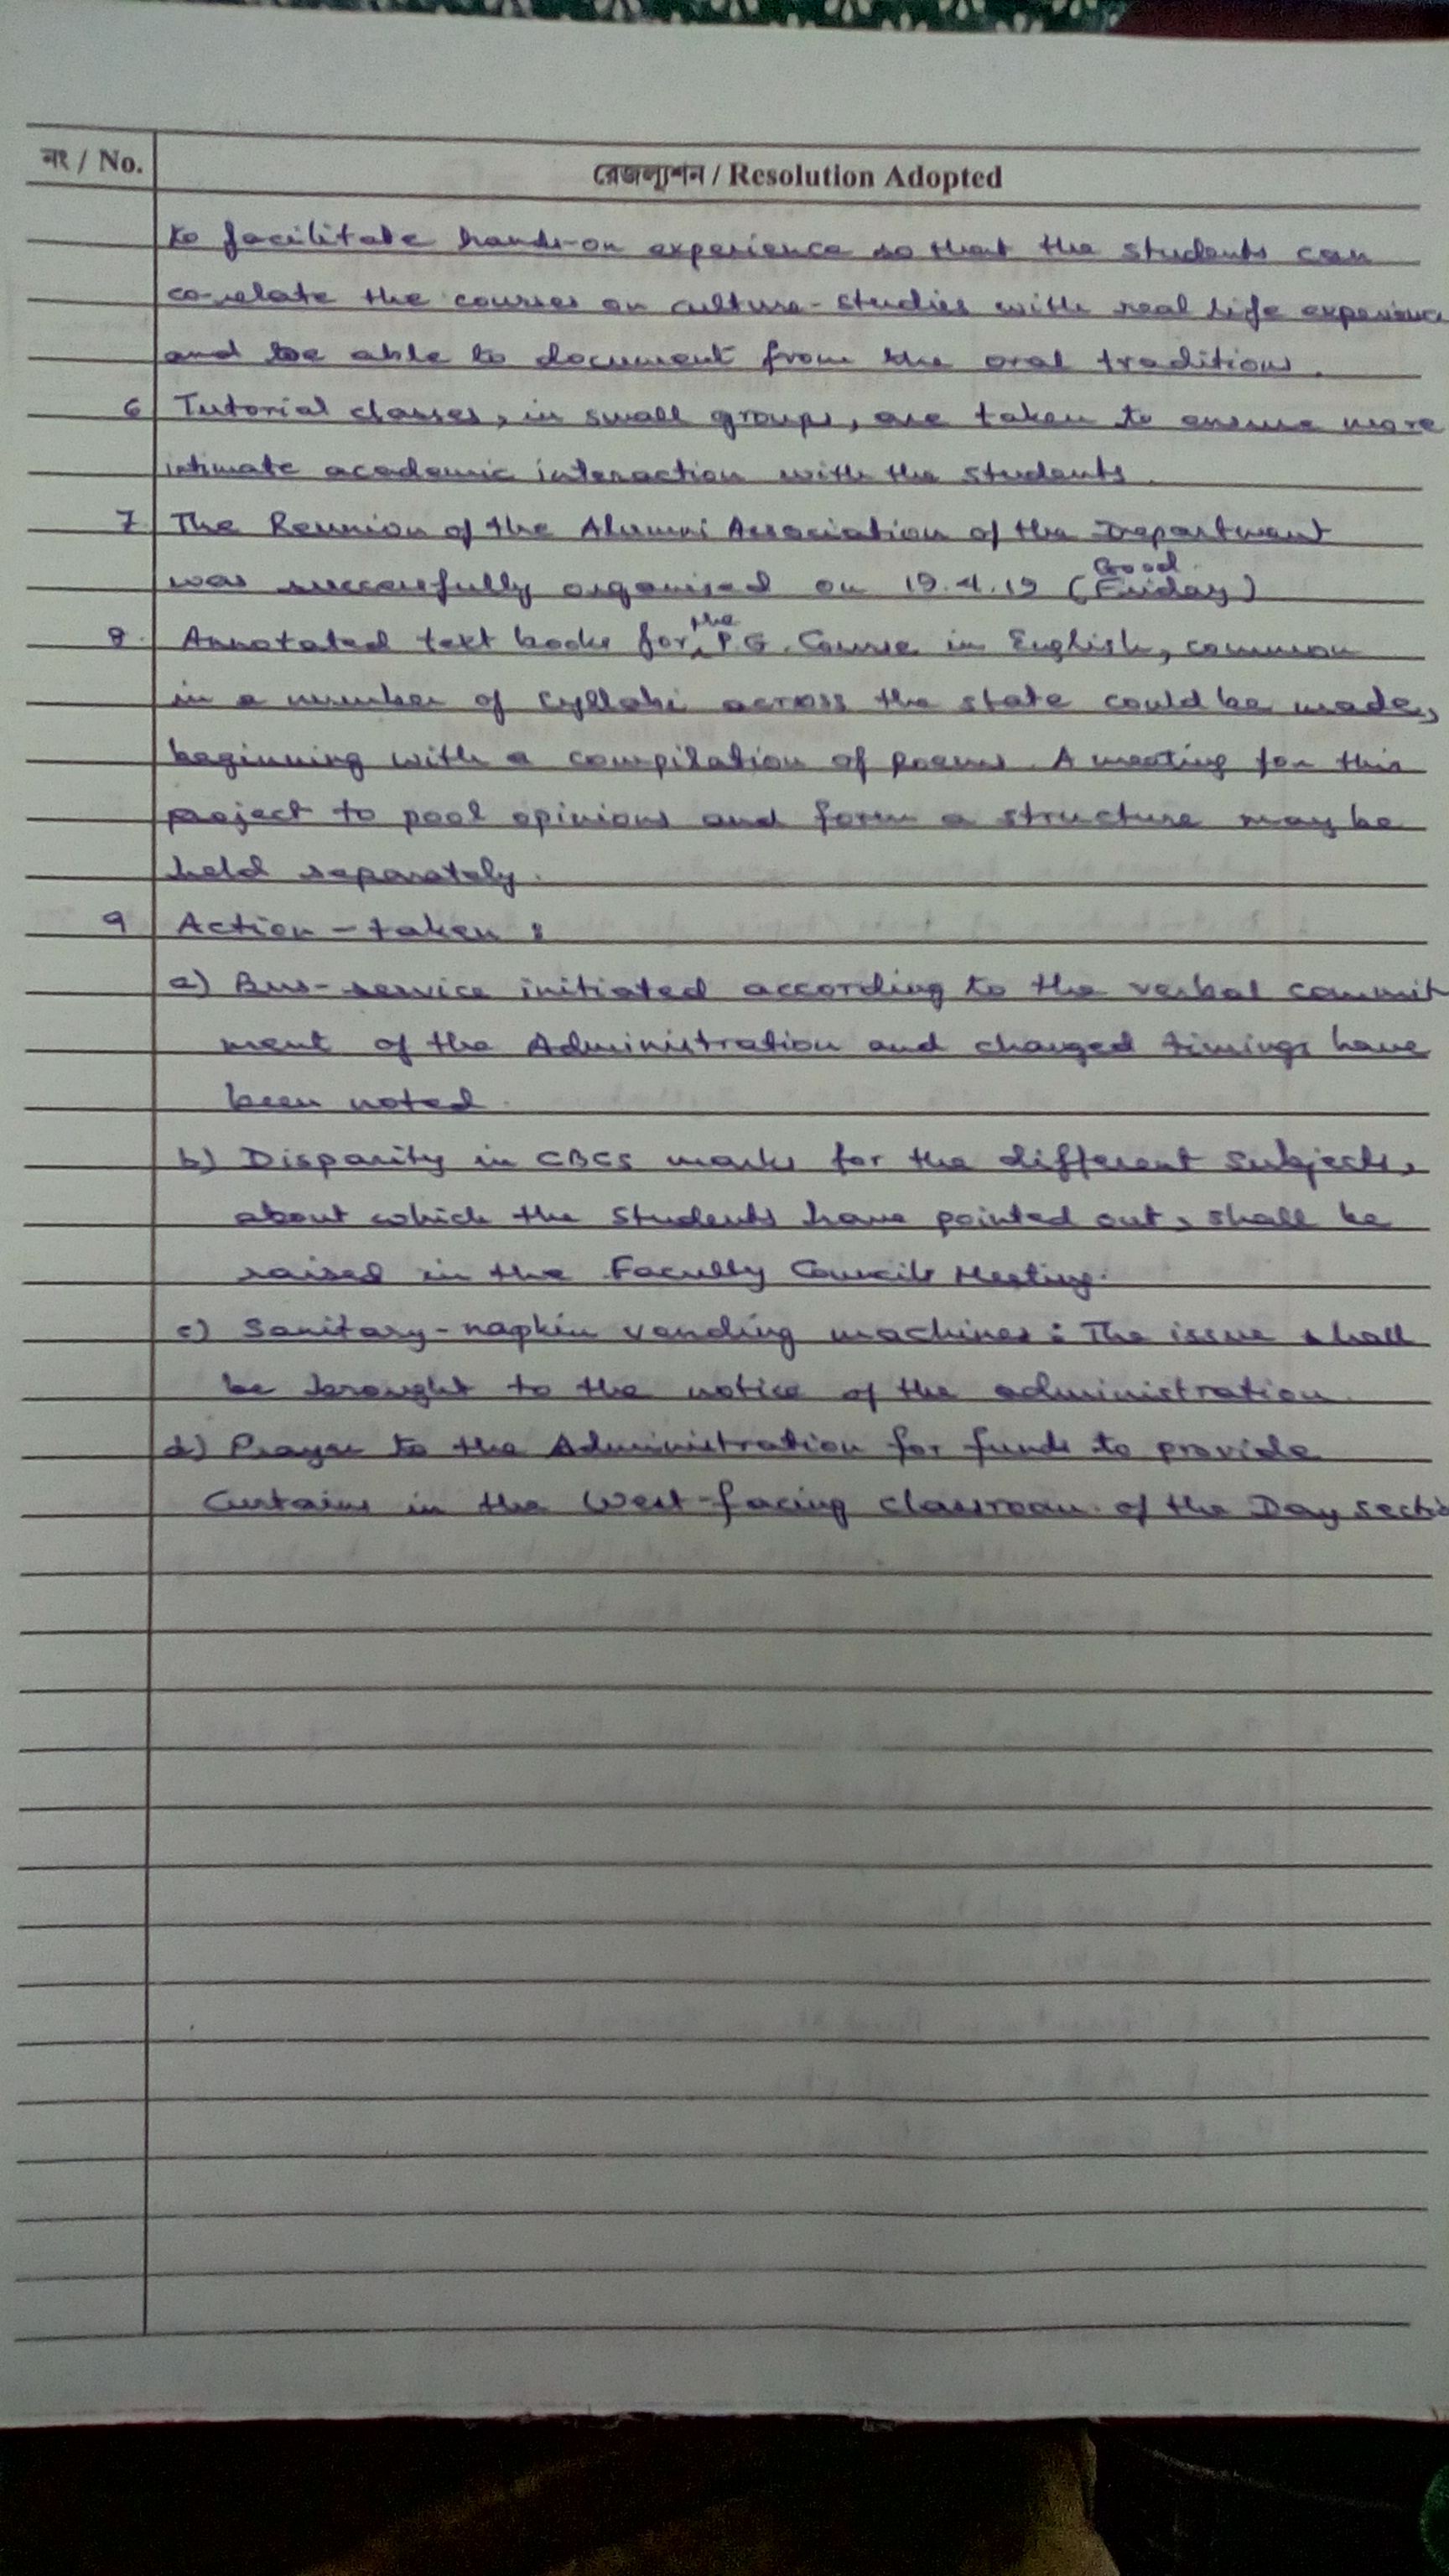 নং / No.
রেজল্যুশন / Resolution Adopted
to facilitate hands-on experience so that the students can
co-relate the courses on culture-studies with real life experience
and be able to document from the oral traditions.
6 Tutorial classes, in small groups, are taken to ensure more
intimate academic interaction with the students.
7. The Reunion of the Alumni Association of the Department
was successfully organised on 19.4.19 (Good Friday)
8. Annotated text books for the P.G. Course in English, common
in a number of syllabi across the state could be made,
beginning with a compilation of poems. A meeting for this
project to pool opinions and form a structure may be
held separately.
9 Action-taken :
a) Bus-service initiated according to the verbal commit
ment of the Administration and changed timings have
been noted.
b) Disparity in CBCS marks for the different subjects,
about which the students have pointed out, shall be
raised in the Faculty Councils Meeting.
c) Sanitary-napkin vending machines : The issue shall
be brought to the notice of the administration.
d) Prayer to the Administration for funds to provide
Curtains in the West-facing classroom of the Day sectio